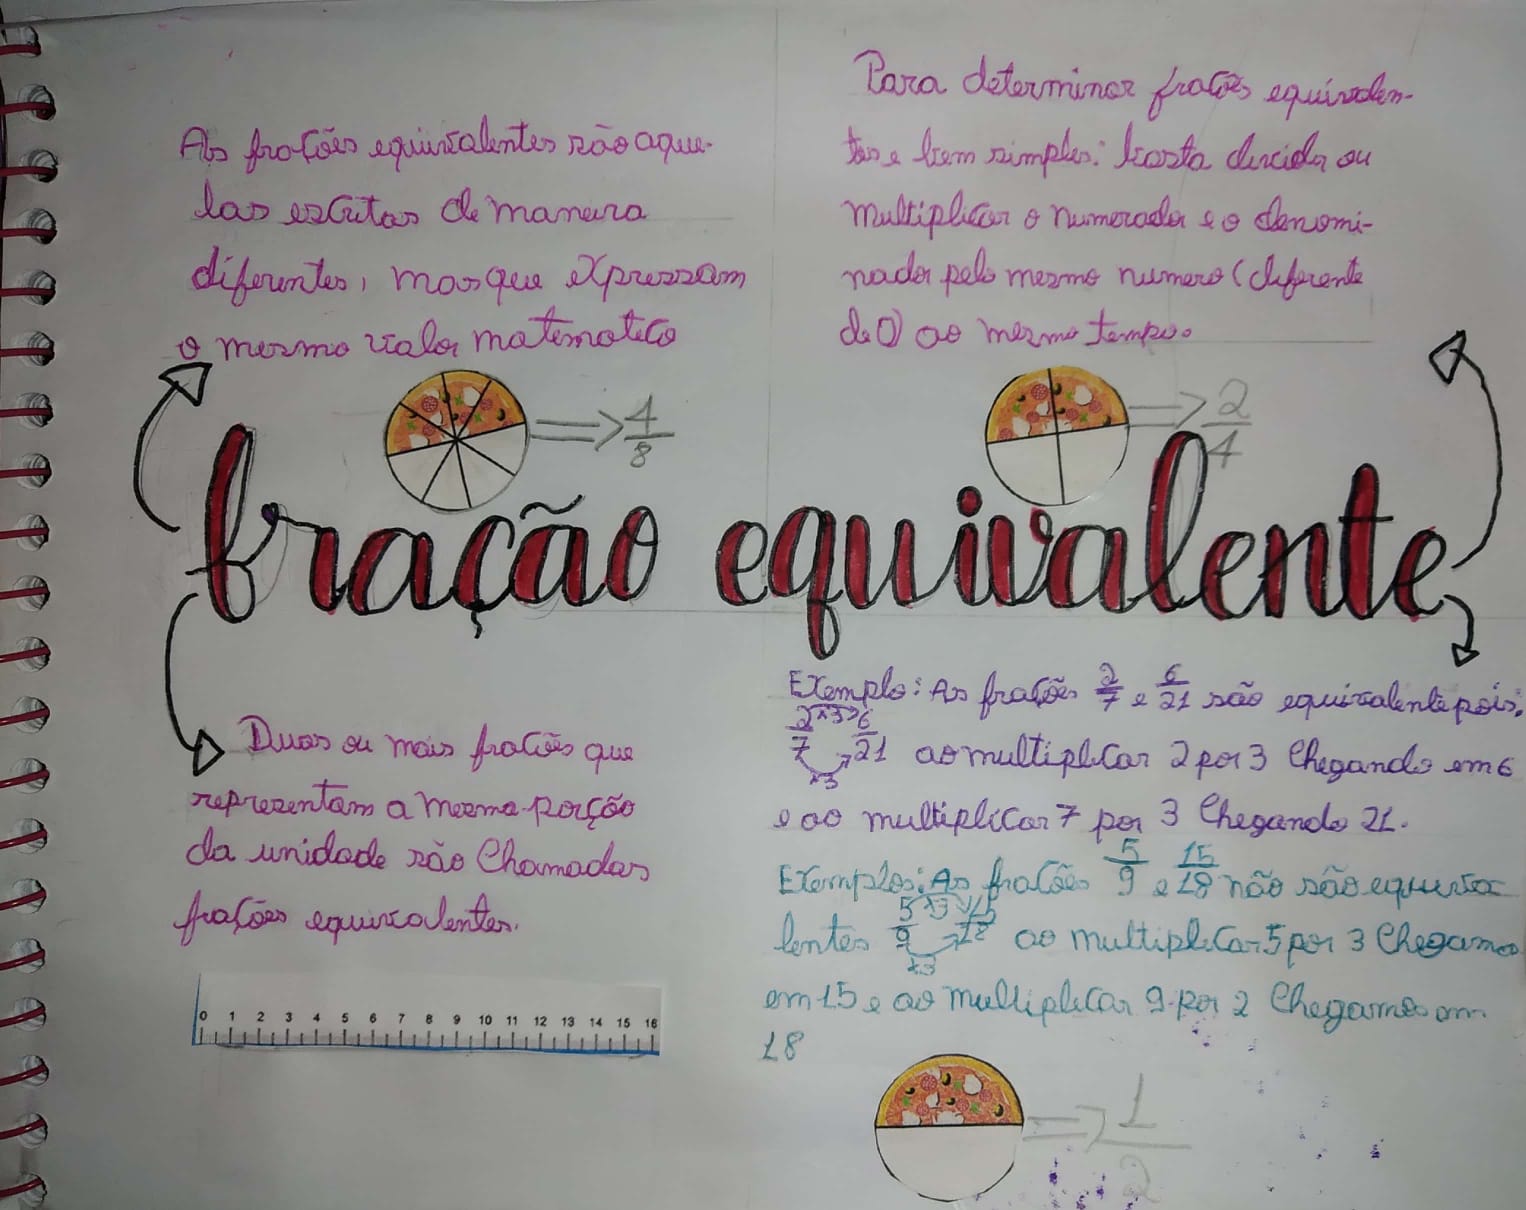 As frações equivalentes são aque-
las escritas de maneira
diferentes, mas que expressam
o mesmo valor matematico
4/8
Para determinar frações equivalen-
tes e bem simples: basta dividir ou
multiplicar o numerador e o denomi-
nador pelo mesmo numero (diferente
de 0) ao mesmo tempo.
2/4
fração equivalente
Duas ou mais frações que
representam a mesma porção
da unidade são chamadas
frações equivalentes.
0 1 2 3 4 5 6 7 8 9 10 11 12 13 14 15 16
Exemplo: As frações 2/7 e 6/21 são equivalente pois:
2/7 x3 6/21 x3 ao multiplicar 2 por 3 chegando em 6
e ao multiplicar 7 por 3 chegando 21.
Exemplos: As frações 5/9 e 15/18 não são equiva
lentes 5/9 x3 15/18 x3 ao multiplicar 5 por 3 chegamos
em 15 e ao multiplicar 9 por 2 chegamos em
18
1/2